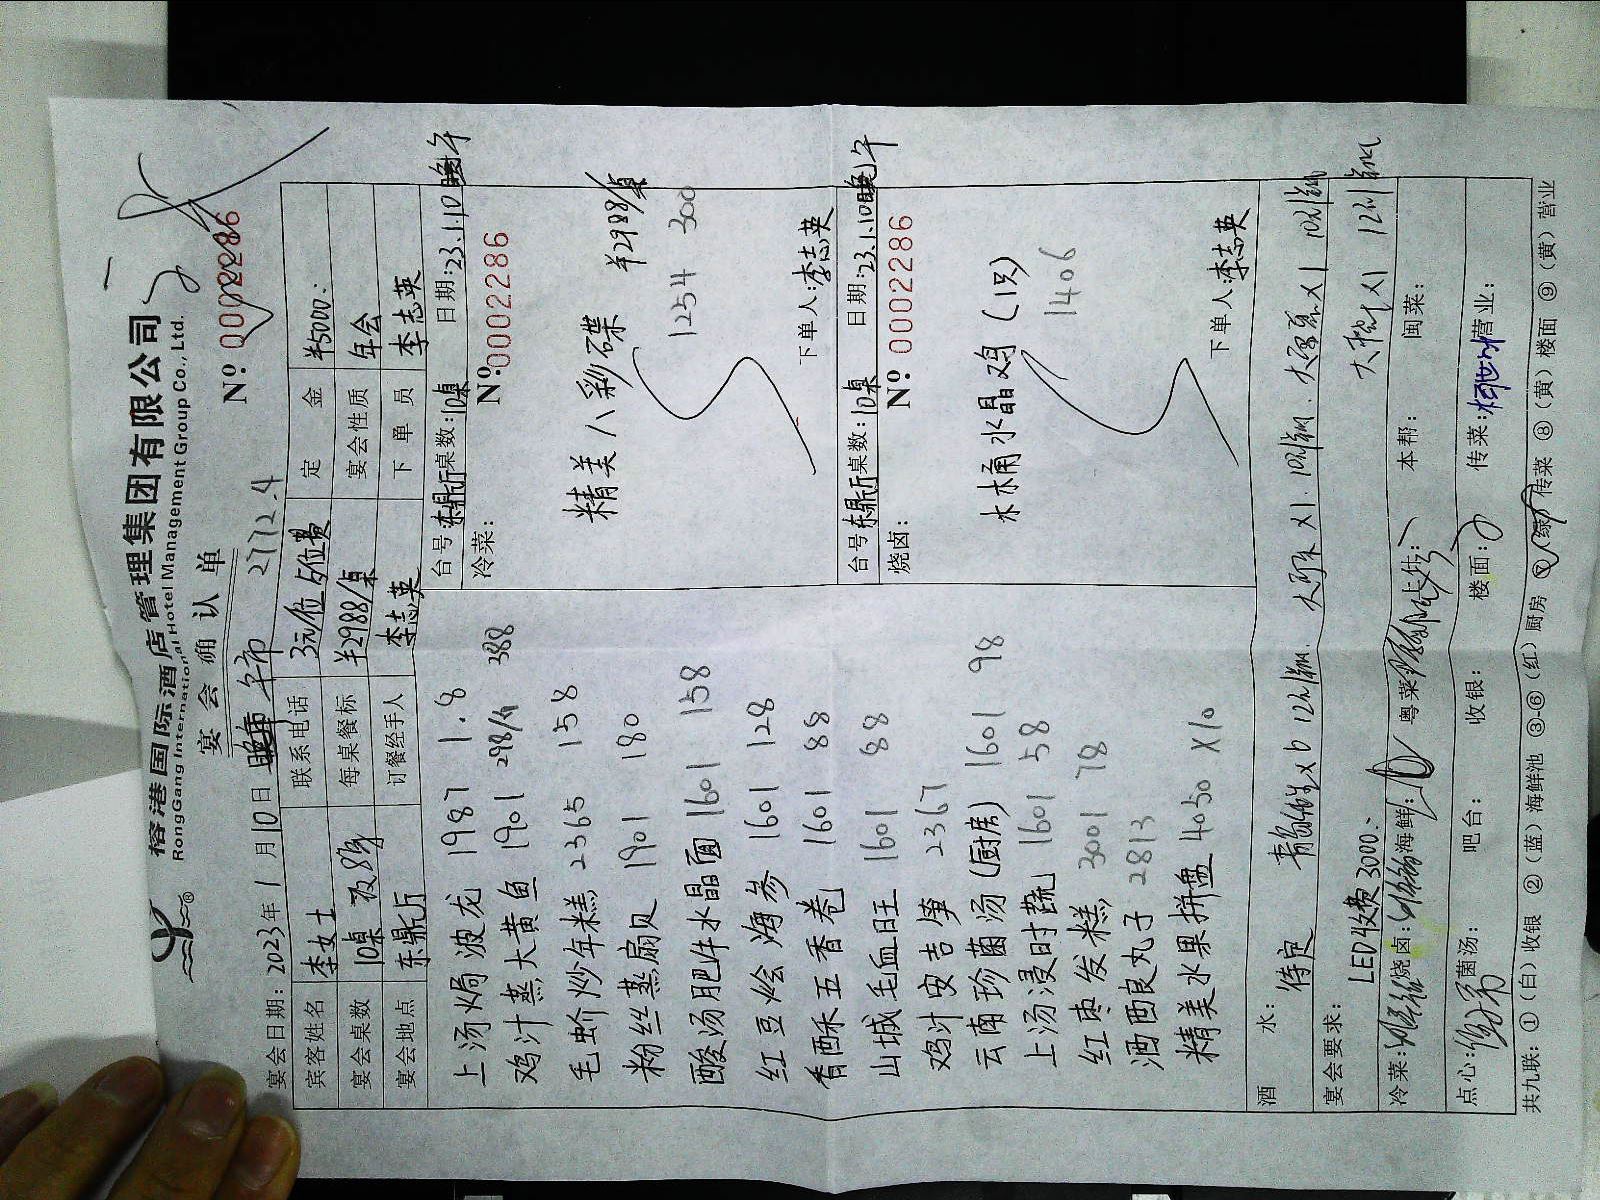 榕港国际酒店管理集团有限公司
RongGang International Hotel Management Group Co., Ltd.
宴会确认单
No. 0002286
宴会日期：2023年1月10日 午市 2772.4
宾客姓名 李女士 联系电话 3元/位 占位费 定金 ¥5000：
宴会桌数 10桌 每桌餐标 ¥2988/桌 宴会性质 年会
宴会地点 东鼎厅 订餐经手人 李志英 下单员 李志英
上汤焗波龙 1987 1.8
鸡汁蒸大黄鱼 1901 298/斤 388
毛蚧炒年糕 2365 158
粉丝蒸扇贝 1901 180
酸汤肥牛水晶面 1601 158
红豆烩海参 1601 128
香酥五香卷 1601 88
山城毛血旺 1601 88
鸡汁安吉笋 2367
云南珍菌汤(厨房) 1601 98
上汤浸时蔬 1601 58
红枣发糕 3001 78
酒酿丸子 2813
精美水果拼盘 4050 X10
台号：东鼎厅 桌数：10桌 日期：23.1.10 午
冷菜： No. 0002286
精美八彩碟 ¥2988/桌
1254 300
下单人：李志英
台号：东鼎厅 桌数：10桌 日期：23.1.10 午
烧卤： No. 0002286
木桶水晶鸡（1只）
1406
下单人：李志英
酒水： 待定
宴会要求：
LED收费3000：
冷菜： 烧卤： 海鲜： 粤菜： 本帮： 闽菜：
点心： 菌汤： 吧台： 收银： 楼面： 传菜： 营业：
共九联：①（白）收银 ②（蓝）海鲜池 ③-⑥（红）厨房 ⑦（绿）传菜 ⑧（黄）楼面 ⑨（黄）营业